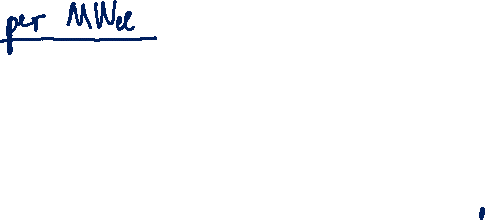 per MWel